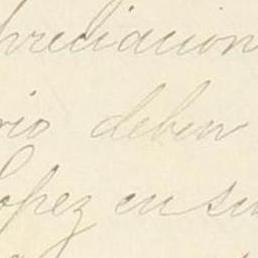 preciacion
rio deben
Lopez en su